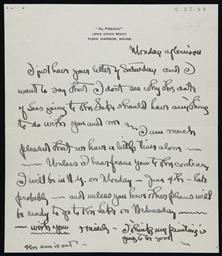 5-29-23
"AL FRESCO"
LONG SANDS BEACH
YORK HARBOR, MAINE
Monday afternoon
I just have your letter of Saturday and I
want to say that I don't see why the date
of Jess going to the Lake should have anything
to do with you and me — I am much
pleased that we have a little time alone —
Unless I hear from you to the contrary
I will be in N.Y. on Monday — June 4th - late
probably — and unless you have other plans will
be ready to go to the Lake on Wednesday —
with you
I think my painting is
going to be good